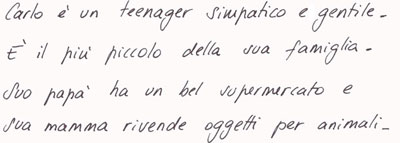 Carlo è un teenager simpatico e gentile.
È il più piccolo della sua famiglia.
Suo papà ha un bel supermercato e
sua mamma rivende oggetti per animali.